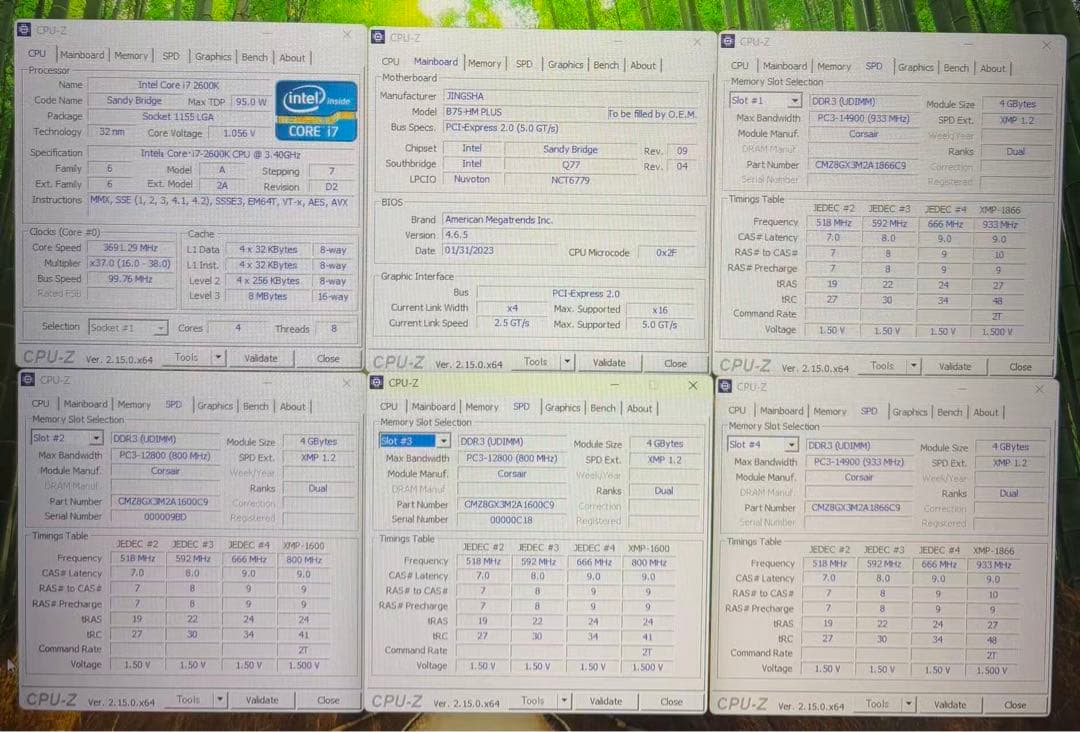 CPU-Z
CPU Mainboard Memory SPD Graphics Bench About
Processor
Name Intel Core i7 2600K
Code Name Sandy Bridge Max TDP 95.0 W
Package Socket 1155 LGA
Technology 32 nm Core Voltage 1.056 V
intel inside
CORE i7
Specification Intel Core i7-2600K CPU @ 3.40GHz
Family 6 Model A Stepping 7
Ext. Family 6 Ext. Model 2A Revision D2
Instructions MMX, SSE (1, 2, 3, 4.1, 4.2), SSSE3, EM64T, VT-x, AES, AVX
Clocks (Core #0)
Core Speed 3691.29 MHz
Multiplier x37.0 (16.0 - 38.0)
Bus Speed 99.76 MHz
Rated FSB
Cache
L1 Data 4 x 32 KBytes 8-way
L1 Inst. 4 x 32 KBytes 8-way
Level 2 4 x 256 KBytes 8-way
Level 3 8 MBytes 16-way
Selection Socket #1 Cores 4 Threads 8
CPU-Z Ver. 2.15.0.x64 Tools Validate Close
CPU-Z
CPU Mainboard Memory SPD Graphics Bench About
Motherboard
Manufacturer JINGSHA
Model B75-HM PLUS To be filled by O.E.M.
Bus Specs. PCI-Express 2.0 (5.0 GT/s)
Chipset Intel Sandy Bridge Rev. 09
Southbridge Intel Q77 Rev. 04
LPCIO Nuvoton NCT6779
BIOS
Brand American Megatrends Inc.
Version 4.6.5
Date 01/31/2023 CPU Microcode 0x2F
Graphic Interface
Bus PCI-Express 2.0
Current Link Width x4 Max. Supported x16
Current Link Speed 2.5 GT/s Max. Supported 5.0 GT/s
CPU-Z Ver. 2.15.0.x64 Tools Validate Close
CPU-Z
CPU Mainboard Memory SPD Graphics Bench About
Memory Slot Selection
Slot #1 DDR3 (UDIMM) Module Size 4 GBytes
Max Bandwidth PC3-14900 (933 MHz) SPD Ext. XMP 1.2
Module Manuf. Corsair Week/Year
DRAM Manuf. Ranks Dual
Part Number CMZ8GX3M2A1866C9 Correction
Serial Number Registered
Timings Table
JEDEC #2 JEDEC #3 JEDEC #4 XMP-1866
Frequency 518 MHz 592 MHz 666 MHz 933 MHz
CAS# Latency 7.0 8.0 9.0 9.0
RAS# to CAS# 7 8 9 10
RAS# Precharge 7 8 9 9
tRAS 19 22 24 27
tRC 27 30 34 48
Command Rate 2T
Voltage 1.50 V 1.50 V 1.50 V 1.500 V
CPU-Z Ver. 2.15.0.x64 Tools Validate Close
CPU-Z
CPU Mainboard Memory SPD Graphics Bench About
Memory Slot Selection
Slot #2 DDR3 (UDIMM) Module Size 4 GBytes
Max Bandwidth PC3-12800 (800 MHz) SPD Ext. XMP 1.2
Module Manuf. Corsair Week/Year
DRAM Manuf. Ranks Dual
Part Number CMZ8GX3M2A1600C9 Correction
Serial Number 000009BD Registered
Timings Table
JEDEC #2 JEDEC #3 JEDEC #4 XMP-1600
Frequency 518 MHz 592 MHz 666 MHz 800 MHz
CAS# Latency 7.0 8.0 9.0 9.0
RAS# to CAS# 7 8 9 9
RAS# Precharge 7 8 9 9
tRAS 19 22 24 24
tRC 27 30 34 41
Command Rate 2T
Voltage 1.50 V 1.50 V 1.50 V 1.500 V
CPU-Z Ver. 2.15.0.x64 Tools Validate Close
CPU-Z
CPU Mainboard Memory SPD Graphics Bench About
Memory Slot Selection
Slot #3 DDR3 (UDIMM) Module Size 4 GBytes
Max Bandwidth PC3-12800 (800 MHz) SPD Ext. XMP 1.2
Module Manuf. Corsair Week/Year
DRAM Manuf. Ranks Dual
Part Number CMZ8GX3M2A1600C9 Correction
Serial Number 00000C18 Registered
Timings Table
JEDEC #2 JEDEC #3 JEDEC #4 XMP-1600
Frequency 518 MHz 592 MHz 666 MHz 800 MHz
CAS# Latency 7.0 8.0 9.0 9.0
RAS# to CAS# 7 8 9 9
RAS# Precharge 7 8 9 9
tRAS 19 22 24 24
tRC 27 30 34 41
Command Rate 2T
Voltage 1.50 V 1.50 V 1.50 V 1.500 V
CPU-Z Ver. 2.15.0.x64 Tools Validate Close
CPU-Z
CPU Mainboard Memory SPD Graphics Bench About
Memory Slot Selection
Slot #4 DDR3 (UDIMM) Module Size 4 GBytes
Max Bandwidth PC3-14900 (933 MHz) SPD Ext. XMP 1.2
Module Manuf. Corsair Week/Year
DRAM Manuf. Ranks Dual
Part Number CMZ8GX3M2A1866C9 Correction
Serial Number Registered
Timings Table
JEDEC #2 JEDEC #3 JEDEC #4 XMP-1866
Frequency 518 MHz 592 MHz 666 MHz 933 MHz
CAS# Latency 7.0 8.0 9.0 9.0
RAS# to CAS# 7 8 9 10
RAS# Precharge 7 8 9 9
tRAS 19 22 24 27
tRC 27 30 34 48
Command Rate 2T
Voltage 1.50 V 1.50 V 1.50 V 1.500 V
CPU-Z Ver. 2.15.0.x64 Tools Validate Close